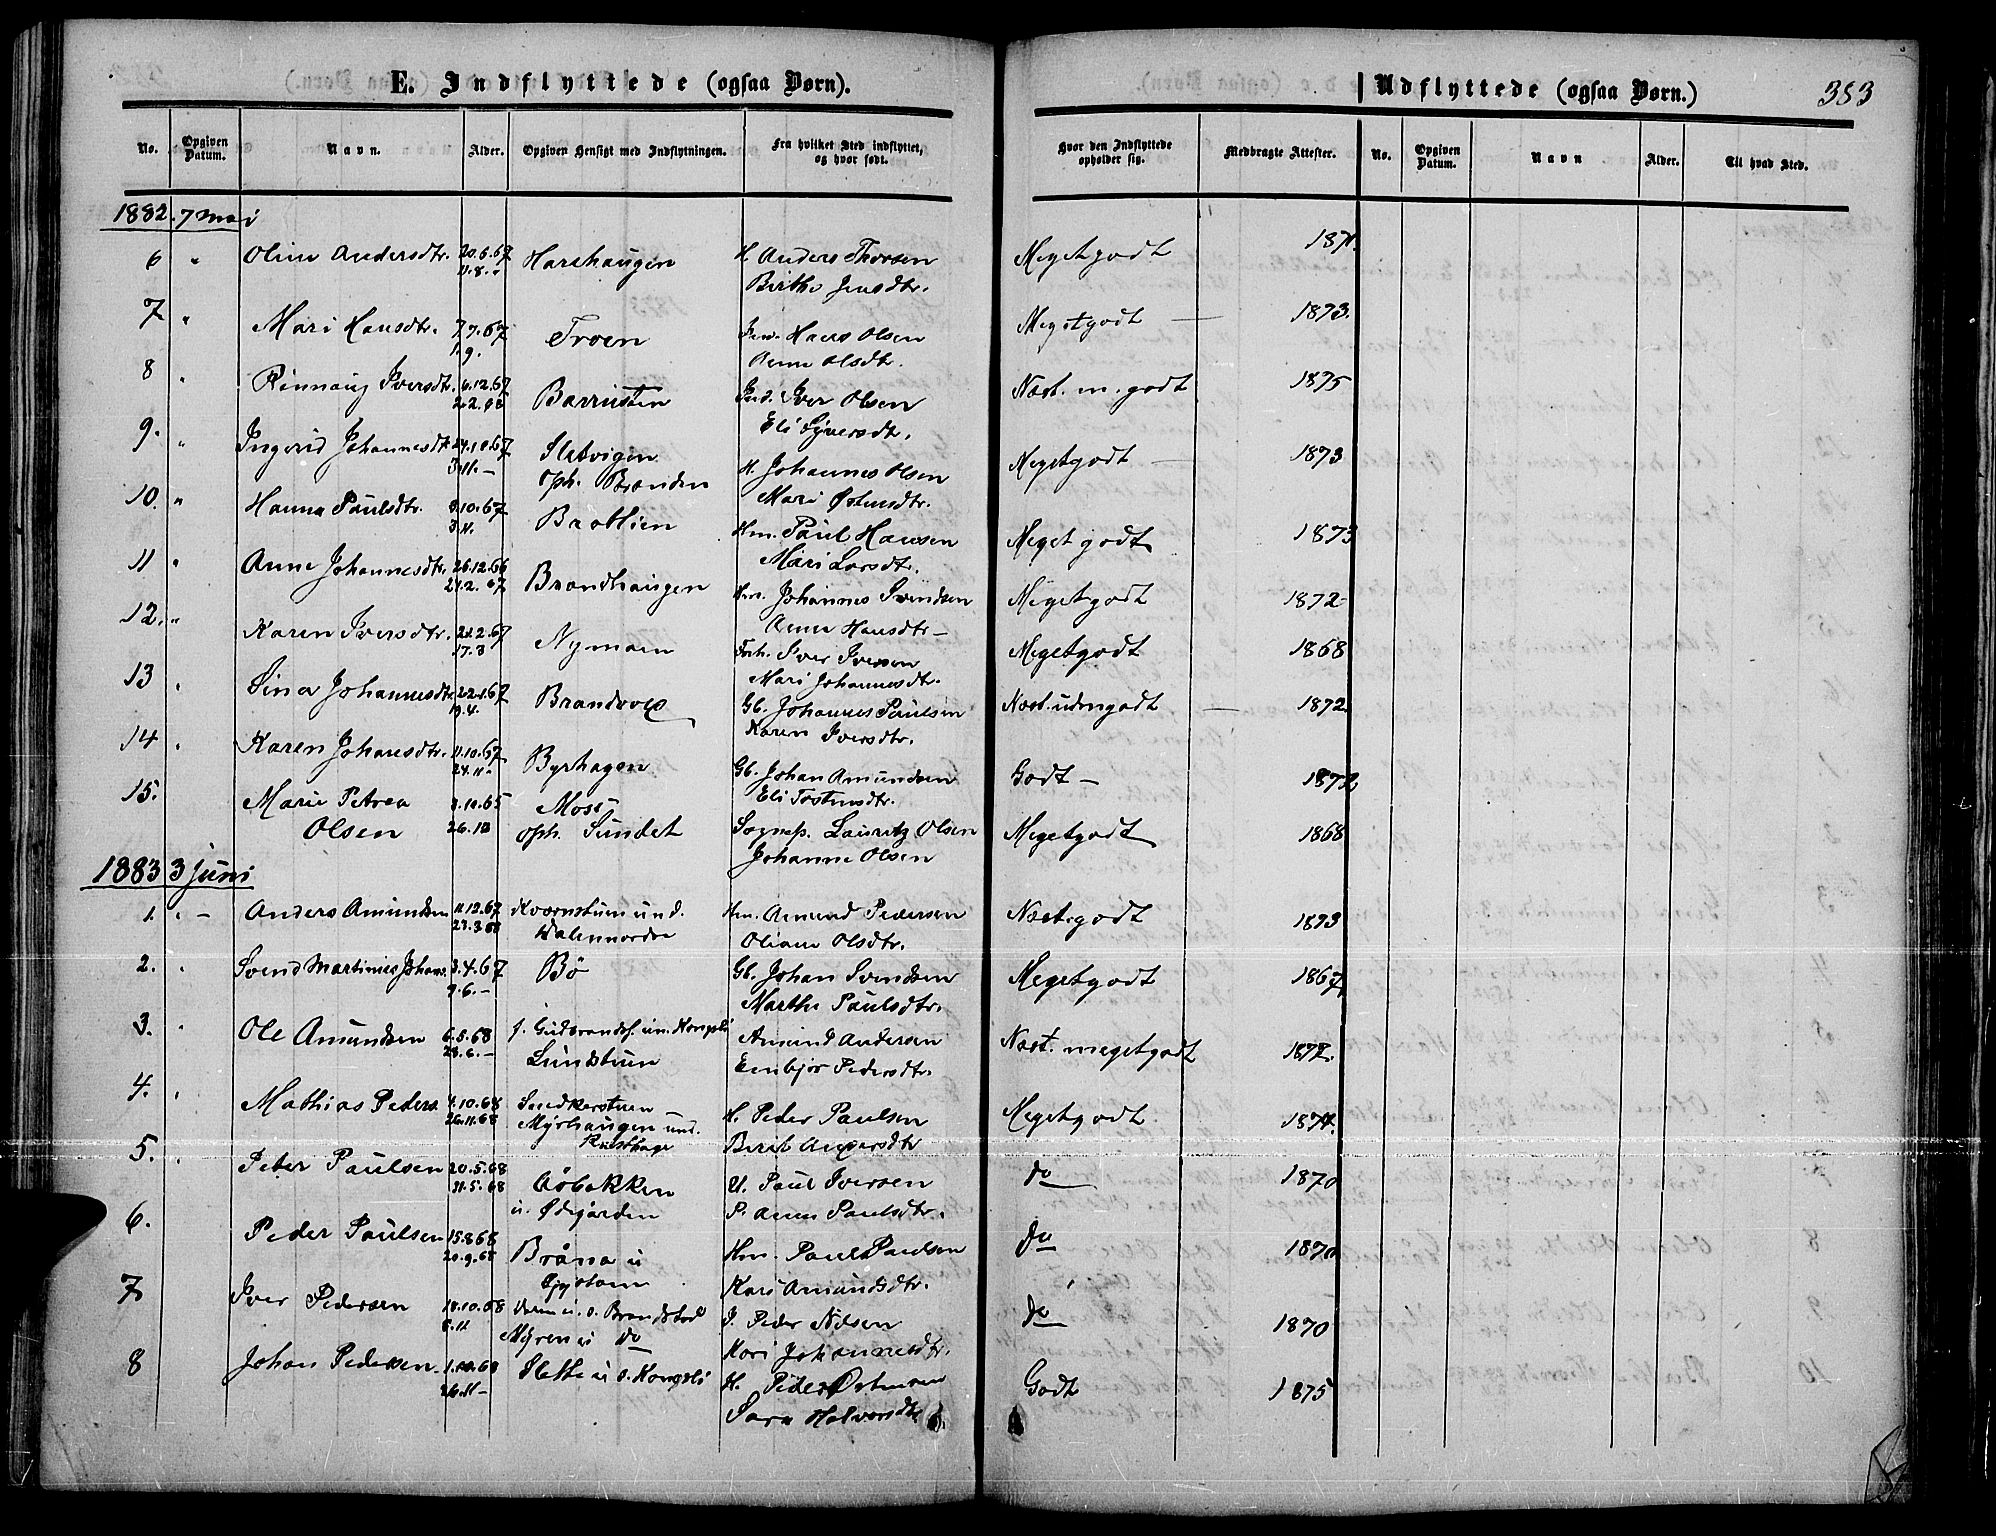 E. Indflyttede (ogsaa Børn).
Udflyttede (ogsaa Børn.)
383
No. Opgiven Datum. Navn. Alder. Opgiven Hensigt med Indflytningen. Fra hvilket Sted indflyttet, og hvor født. Hvor den Indflyttede opholder sig. Medbragte Attester. No. Opgiven Datum. Navn Alder. Til hvad Sted.
1882. 7 mai
6 " Oline Andersdtr. 20.6.67 Harehaugen H. Anders Thorsen Megetgodt 1871.
11.8.- Birthe Jensdtr.
7 " Mari Hansdtr. 7.7.67 Troen Hans Olsen Megetgodt — 1873.
1.9. Anne Olsdtr.
8 " Rinnaug Iversdtr. 6.12.67 Barrusten Ind. Iver Olsen Næst. m. godt 1875
2.2.68 Eli Syversdt.
9. " Ingerid Johannesdt. 24.10.67 Sletvigen H. Johannes Olsen Megetgodt — 1873
3.11.- oph. Branden Mari Østensdtr.
10. " Hanna Paulsdtr. 3.10.67 Brotlien Hm. Paul Hansen Meget godt 1873
3.11. Mari Larsdt.
11 " Anne Johannesdtr. 26.12.66 Brandhaugen Hm. Johannes Svendsen Megetgodt 1872-
24.2.67 Anne Hansdtr-
12. " Karen Iversdtr. 21.2.67 Nymoen Forh. Iver Iversen Megetgodt 1868
17.3 Mari Johannesdtr.
13 " Sina Johannesdtr. 22.1.67 Brandvol Gb. Johannes Paulsen Næst.udmgodt — 1872.
19.4. Karen Iversdtr.
14 " Karen Johansdtr. 11.10.67 Byrhagen Gb. Johan Amundsen Godt — 1872
24.11.- Eli Tostensdtr.
15. Marie Petrea 3.10.65 Moss Sognep. Lauritz Olsen Megetgodt 1868
Olsen 26.10 oph. Sundet Johanne Olsen
1883 3 juni
1. " — Anders Amundsen 11.12.67 Kvernstuen und. Hm. Amund Pedersen Næst.godt 1873
23.3.68 Dalennordre Oliane Olsdtr.
2. " Svend Martinius Johans. 3.4.67 Bö Gb. Johan Svendsen Megetgodt 1867
9.6.- Marthe Paulsdtr.
3. " Ole Amundsen 6.5.68 f. Gudbrandsf. un. Kongsli Amund Andersen Næst. megetgodt 1872.
28.6.- Lundstuen Embjør Pedersdtr.
4. " Mathias Peders. 4.10.68 Snedkerstuen H. Peder Paulsen Megetgodt. 1874.
26.11.68 Myrhaugen und. Rusthage Berit Andersdtr
5. " Peter Paulsen 20.5.68 Aabakken U. Paul Iversen do 1870
31.5.68 u. Ødegården P. Anne Paulsdtr.
6. Peder Paulsen 15.8.68 Bråna u Hm. Paul Paulsen do 1870
20.9.68 Kari Amundsdtr.
7 Iver Pedersen 18.10.68 u. s. Brandstad I. Peder Nilsen do 1870
8.11 Myren u do Kari Johannesdtr.
8 Johan Pedersen 1.10.68 Slette u s. Kongsli H. Peder Østensen Godt 1875
26.11- Sara Halvorsdtr.